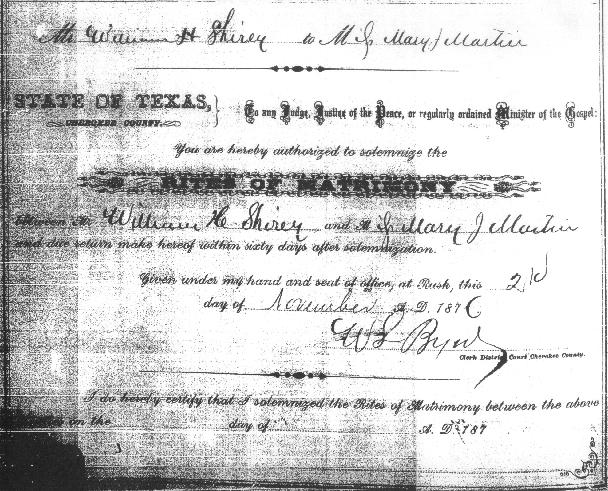 Mr William H Shirey to M Mary J Martin
STATE OF TEXAS, } To any Judge, Justice of the Peace, or regularly ordained Minister of the Gospel:
CHEROKEE COUNTY.
You are hereby authorized to solemnize the
RITES OF MATRIMONY
Between Mr William H Shirey and M Mary J Martin
and due return make hereof within sixty days after solemnization.
Given under my hand and seal of office, at Rusk, this 2d
day of November A. D. 1876
Clerk District Court Cherokee County.
I do hereby certify that I solemnized the Rites of Matrimony between the above
on the day of A. D. 187